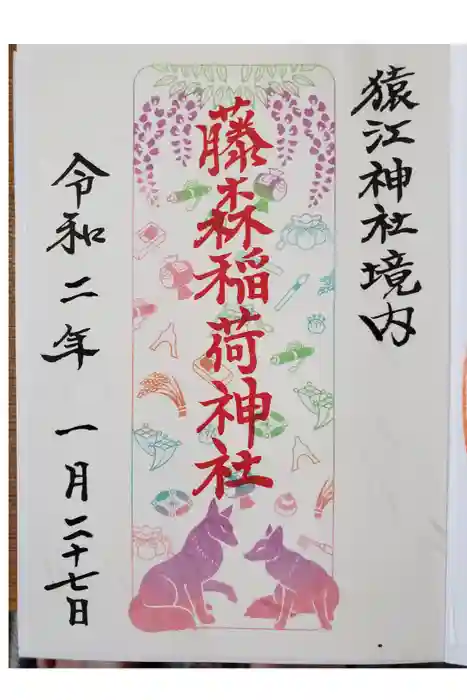 猿江神社境内
藤森稲荷神社
令和二年 一月二十七日